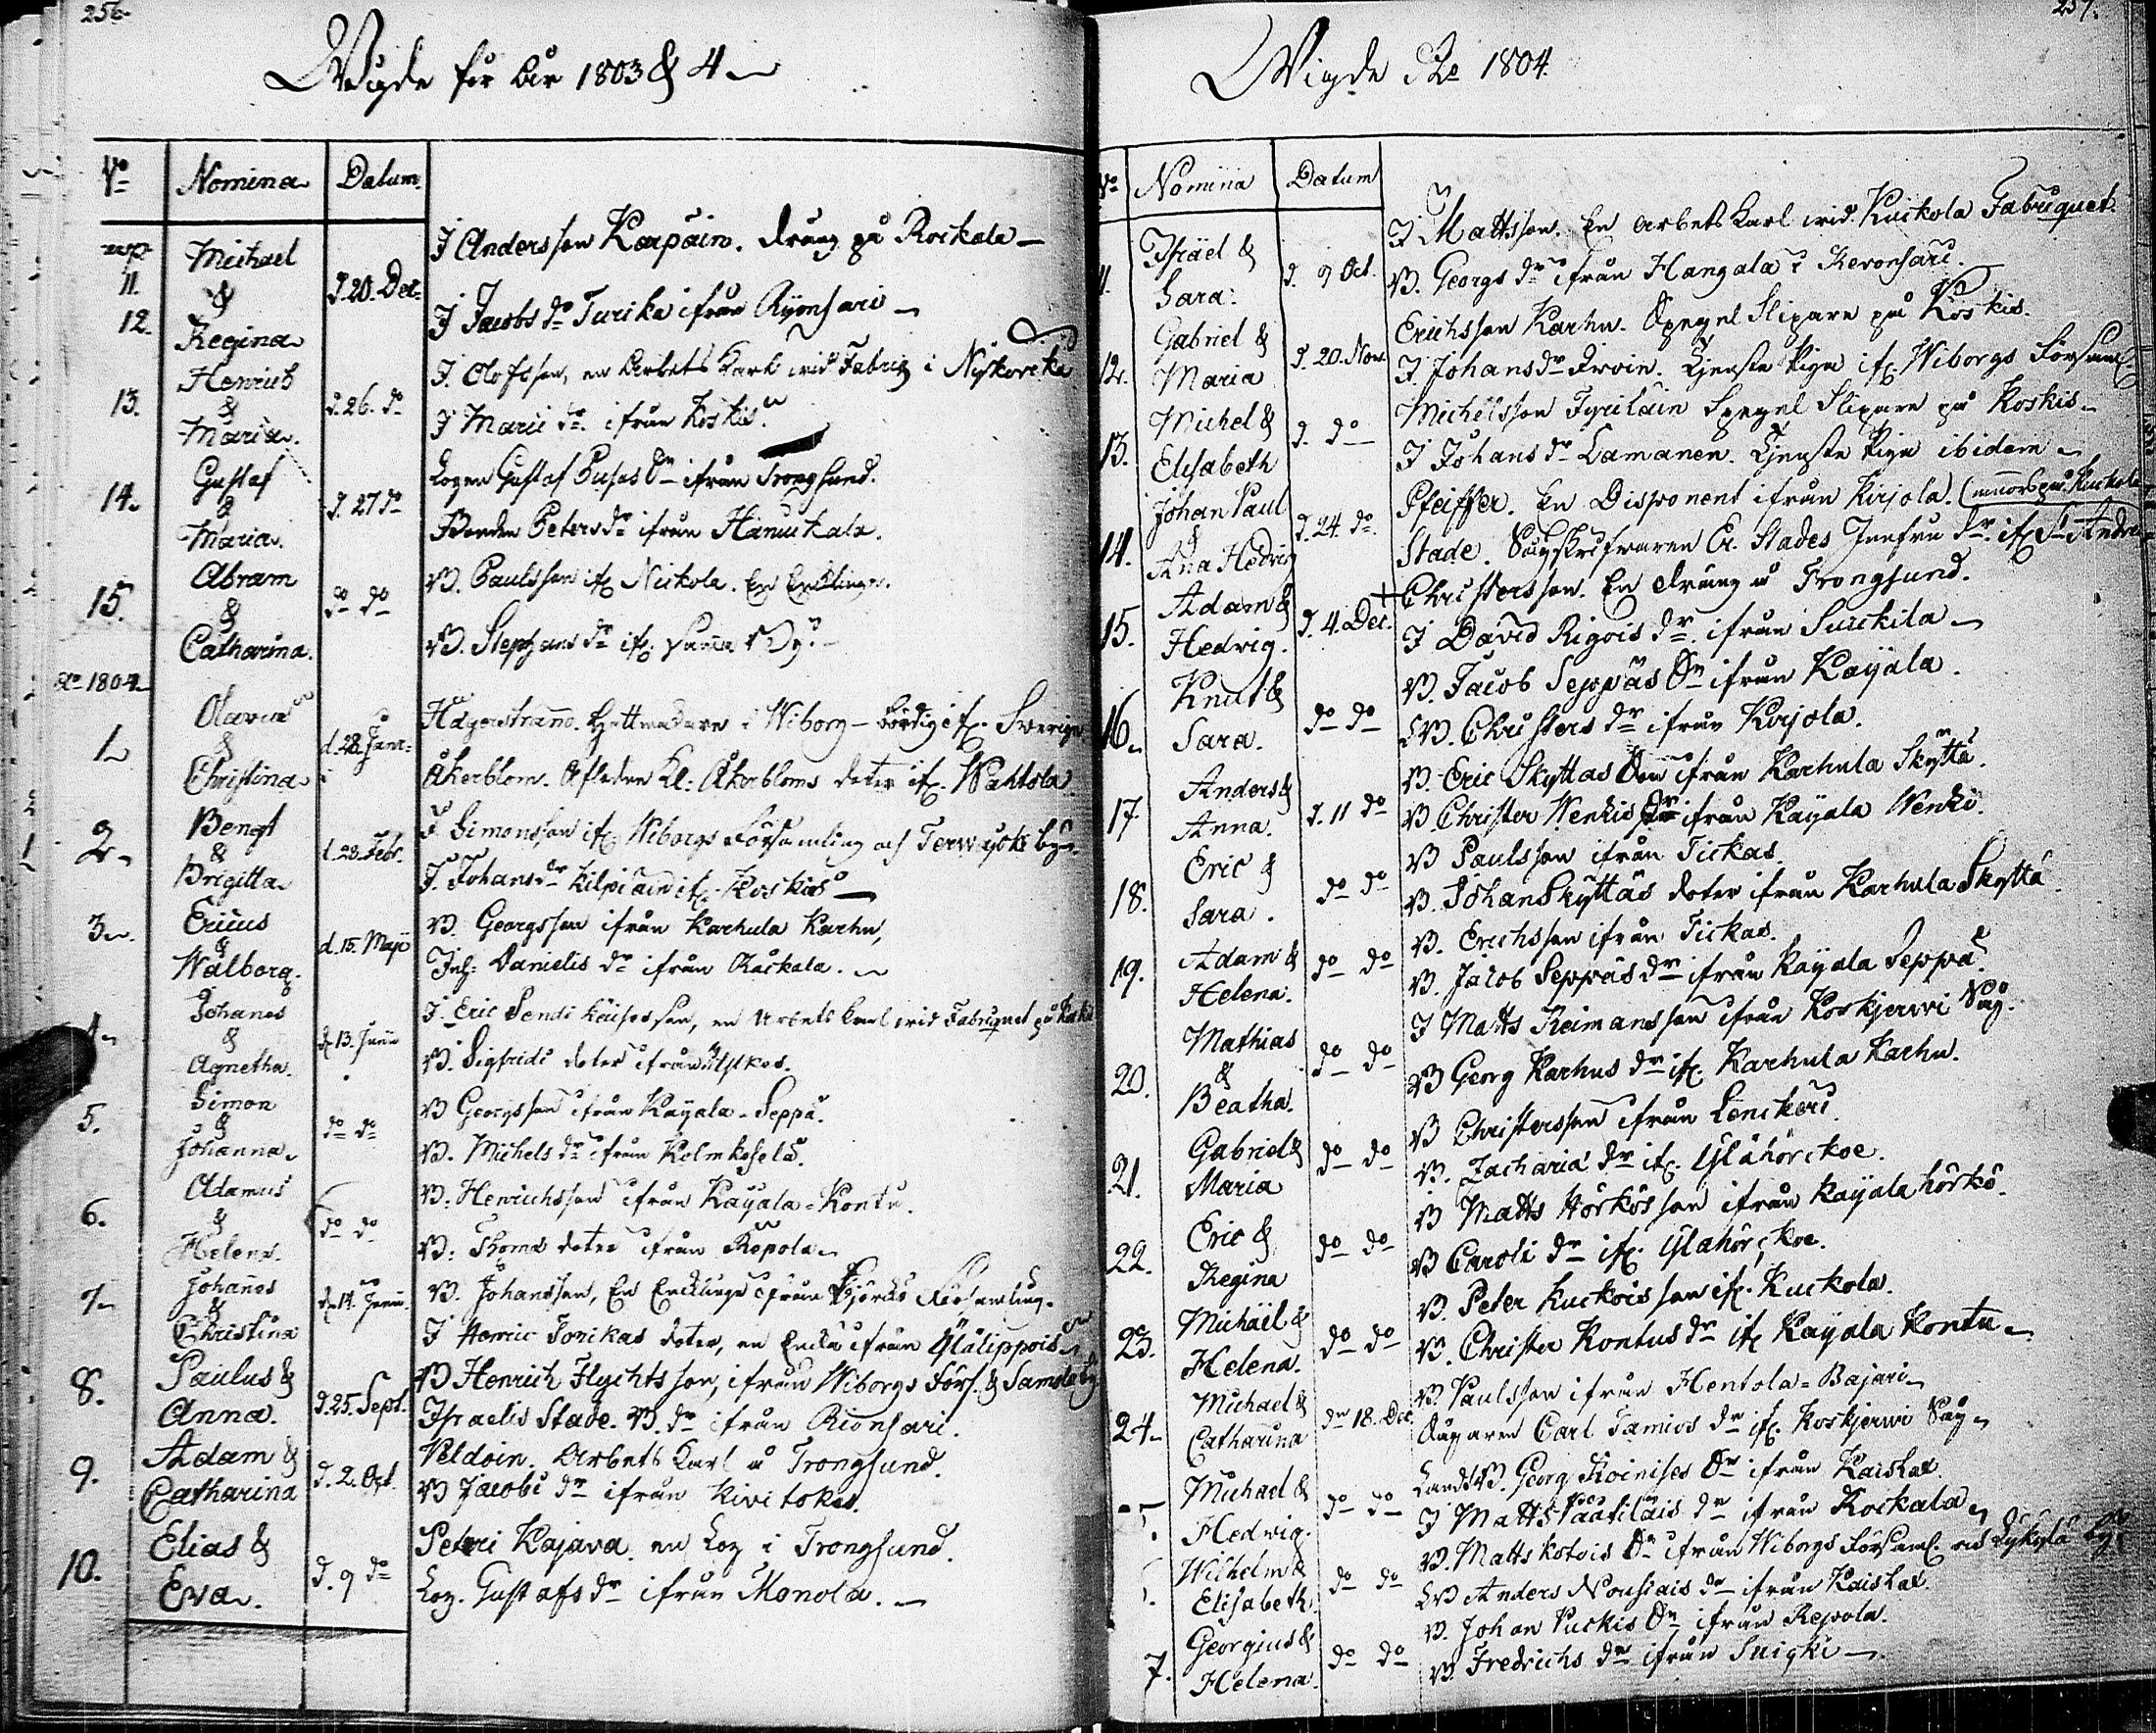 256.
Wigde för år 1803 & 4
No Nomina Datum
11. Michael & Regina d. 20. Dec.
I Andersson Karpain. dräng på Rockala
I Jacobs dr Turika ifrån Ryönsari
12. Henrich & Maria. d. 26. do
I. Olofsson, en Arbets Karl wid Fabriq i
I Marii dr. ifrån Koskis.
13. Gustaf & Maria. d. 27 do
Gustaf ifrån Trongsund.
Bonden Peters dr ifrån Hanuckala.
14. Abram & Catharina. do do
B. Paulsson if. Nickola. En Enklinge.
B. Stephans dr if. samma By.
15.
Ao 1804
1. Olavus & Christina d. 28. Janr.
Hagerstranno. Hattmakare i Wiborg - bördig if. Sverige
Åkerblom. Afledne Kl: Åkerbloms doter if. Wahtola
2. Bengt & Brigitta d. 28. Febr.
I. Simonsson if. Wiborgs Församling och Terwajoki by.
I. Johans dr Kilpiäin if. Koskis
3. Ericus & Walborg. d. 15. Maji
B. Georgsson ifrån Karhula Karhu,
Inh: Danielis dr ifrån Räckala.
4. Johanes & Agnetha. d. 13. Junii
I. Eric son, en Arbets karl wid Fabriquet på
B. Sigfrids doter ifrån
5. Simon & Johanna. do do
B Georgsson ifrån Kayala-Seppä.
B. Michels dr ifrån Kolmkesela.
6. Adamus & Helena. do do
B. Henrichsson ifrån Kayala-Kontu.
B. Thomæ doter ifrån Repola
7. Johanes & Christina d. 14. Junii.
B. Johansson, En Enklinge ifrån Björkö Församling.
I Henric Torikas doter, en Enka ifrån
8. Paulus & Anna. d. 25. Sept.
B Henrich Flychts son, ifrån Wiborgs Förs. & Samola by
Israelis Stade. B. dr ifrån Rionsari.
9. Adam & Catharina d. 2. Oct.
Veldoin. Arbets Karl å Trongsund.
B Jacobi dr ifrån Kivitokes.
10. Elias & Eva. d. 9 do
Petri Kajava. en Loz i Trongsund.
Loz. Gustafs dr ifrån Monola.
257.
Wigde Ao 1804.
No Nomina Datum
11. Israel & Sara. d. 9 Oct.
I Mattsson. En Arbets Karl wid Kuckola Fabriquet.
B. Georgs dr ifrån Hangala i Kevonsari.
12. Gabriel & Maria d. 20. Nov.
Erichsson Karhu. Spegel Slipare på Koskis.
I Johans dr Orvin. Tjenste Piga if. Wiborgs Församl.
13. Michel & Elisabeth d. do
Michelsson Tyriläin Spegel Slipare på Koskis.
I Johans dr Lamanen. Tjenste Piga ibidem
14. Johan Paul & Ana Hedvig d. 24 do.
Pfeiffer. En Disponent ifrån Kirjola.
Stade. Er. Stades Jumfru dr. if. St Andreæ
15. Adam & Hedvig. d. 4. Dec.
+ Christersson. En dräng å Trongsund.
I David Rigois dr. ifrån Suickila
16. Knut & Sara. do do
B. Jacob Seppäs Sn ifrån Kayala.
LB. Christers dr ifrån Kirjola.
17 Anders & Anna. d. 11 do
B. Eric Skyttas Son ifrån Karhula Skyttä.
B. Christer Wenkis dr ifrån Kayala Wenki.
18. Eric & Sara. do do
B Paulsson ifrån Tickas
B. Johan Skyttäs doter ifrån Karhula Skyttä
19. Adam & Helena. do do
B. Erichsson ifrån Tickas.
B. Jacob Seppäs dr ifrån Kayala Seppä
20. Mathias & Beatha. do do
I Matts Reimansson ifrån Koskjerwi Såg.
B Georg Karhus dr if. Karhula Karhu.
21. Gabriel & Maria do do
B Christersson ifrån Lenckeri.
B. Zachariæ dr if. Ylähörckoe.
22. Eric & Regina do do
B Matts Hörkös son ifrån Kayala hörkö.
B Caroli dr if. Ylahörckoe.
23. Michäil & Helena. do do
B. Peter Kuckois son if. Kuckola.
B. Christer Kontus dr if. Kayala Kontu
24. Michael & Catharina den 18. Dec.
B. Paulsson ifrån Hentola-Bajari
Sågaren Carl Tamios dr if. Koskjerwi Såg
5. Michael & Hedwig. do do
LandtB. Georg Koinises Sn ifrån Kaislax.
I Matts Päätiläis dr ifrån Rockala
Wilhelm & Elisabeth. do do
B. Matts Kotois Sn ifrån Wiborgs Församl. och by
LB Anders Nousiais dr ifrån Kaislax.
7. Georgius & Helena. do do
B. Johan Puckis Sn ifrån Repola.
B. Fredrichs dr ifrån Suicki